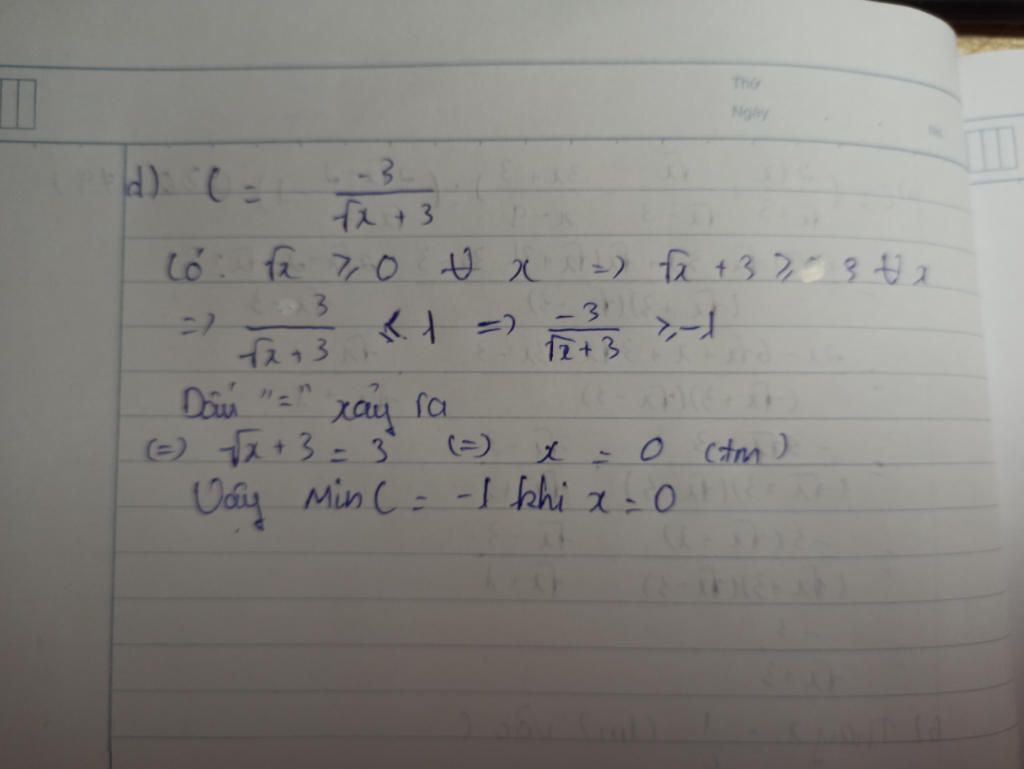 Thứ
Ngày
d) C = \frac{-3}{\sqrt{x}+3}
Có: \sqrt{x} ⩾ 0 ∀ x => \sqrt{x} + 3 ⩾ 3 ∀ x
=> \frac{3}{\sqrt{x}+3} ⩽ 1 => \frac{-3}{\sqrt{x}+3} ⩾ -1
Dấu "=" xảy ra
(=) \sqrt{x} + 3 = 3 (=) x = 0 (tm)
Vậy Min C = -1 khi x = 0